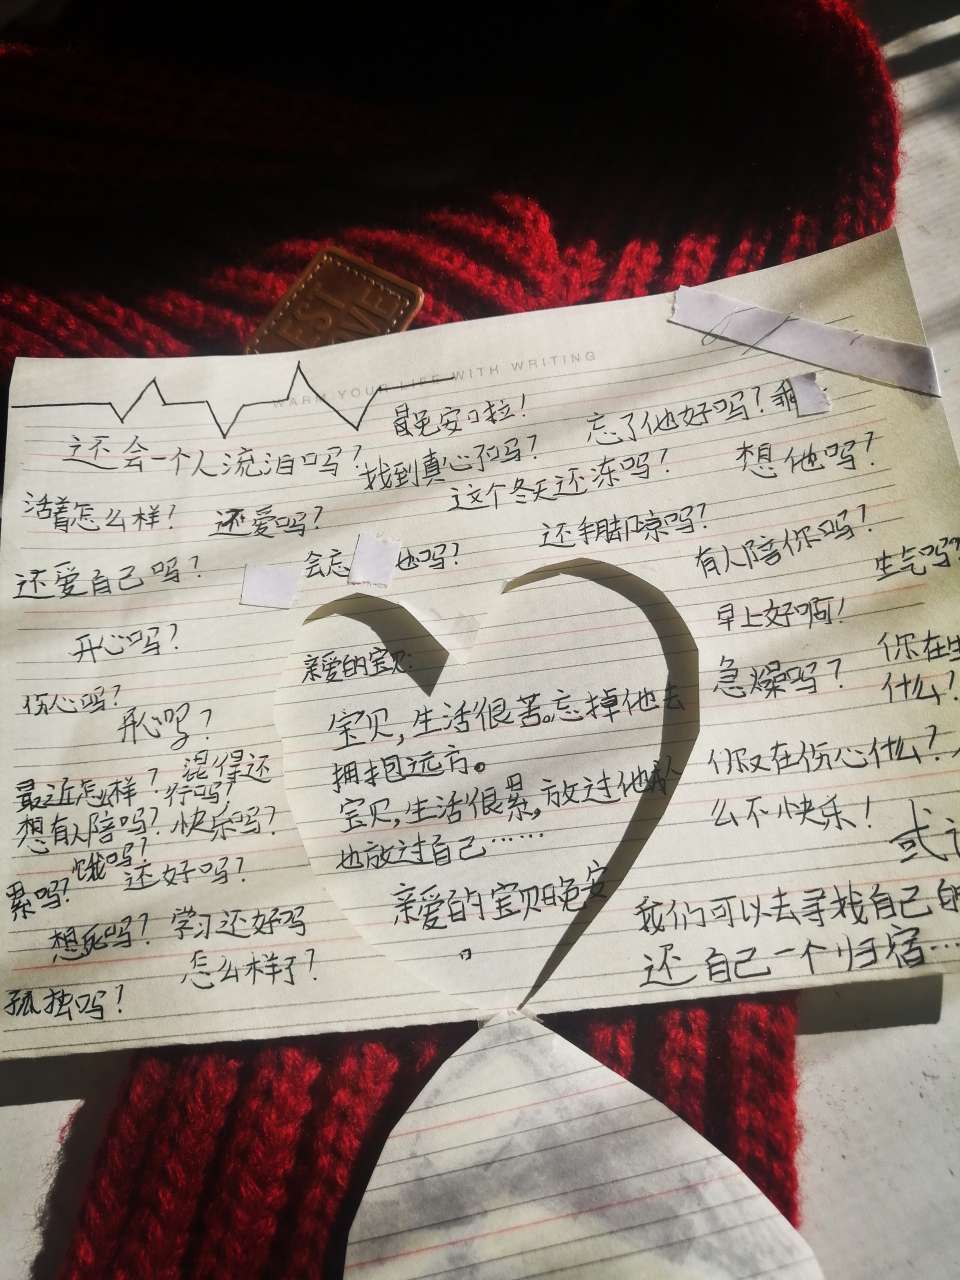 WARM YOUR LIFE WITH WRITING
冒皂安口拉！
忘了他好吗？
还会一个人流泪吗？
找到真心了吗？
这个冬天还冻吗？
想他吗？
活着怎么样！
还爱吗？
还手脚凉吗？
有人陪你吗？
生气吗？
还爱自己吗？
会忘
他吗？
早上好啊！
开心吗？
急燥吗？
你在生
什么？
伤心吗？
开心吗？
你又在伤心什么？
么不快乐！
或许
最近怎样？
混得还
行吗！
想有人陪吗？
快乐吗？
饿吗？
还好吗？
累吗？
想死吗？
学习还好吗
怎么样了？
孤独吗？
我们可以去寻找自己的
还自己一个归宿…
亲爱的宝贝：
宝贝，生活很苦。忘掉他去
拥抱远方。
宝贝，生活很累，放过他
也放过自己……
亲爱的宝贝晚安
。